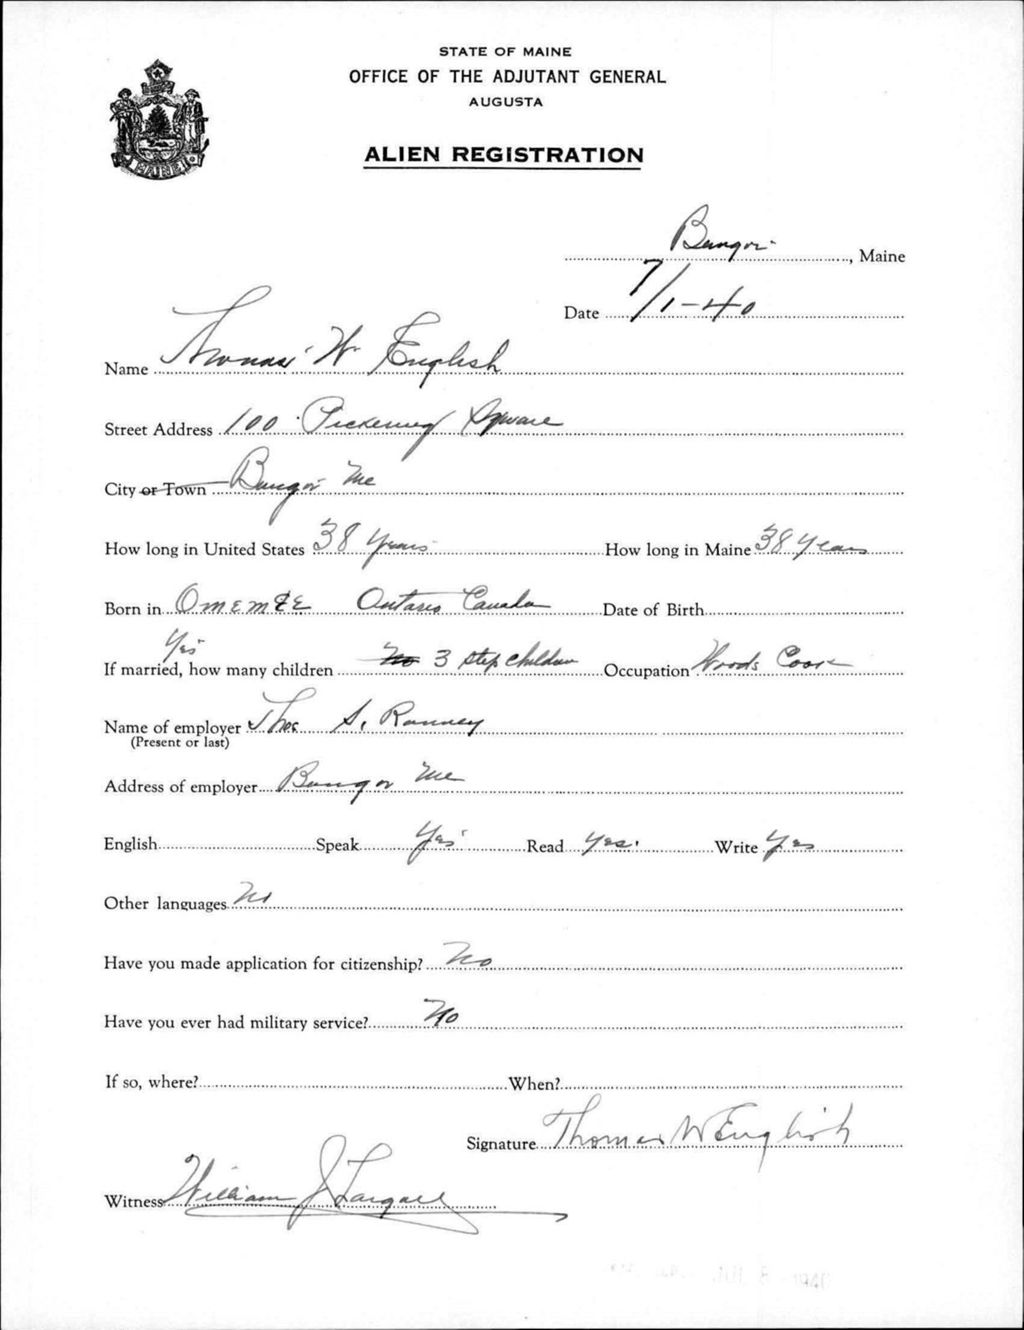 STATE OF MAINE
OFFICE OF THE ADJUTANT GENERAL
AUGUSTA
ALIEN REGISTRATION
MAINE
Bangor, Maine
Date 7/1-40
Name Thomas W. English
Street Address 100 Pickering Square
City or Town Bangor Me
How long in United States 38 Years How long in Maine 38 Years
Born in Omemee Ontario Canada Date of Birth
Yes
If married, how many children No 3 step children Occupation Woods Cook
Name of employer Thos S. Ranney
(Present or last)
Address of employer Bangor Me
English Speak Yes Read Yes. Write Yes
Other languages No
Have you made application for citizenship? No
Have you ever had military service? No
If so, where? When?
Signature Thomas W English
Witness William J